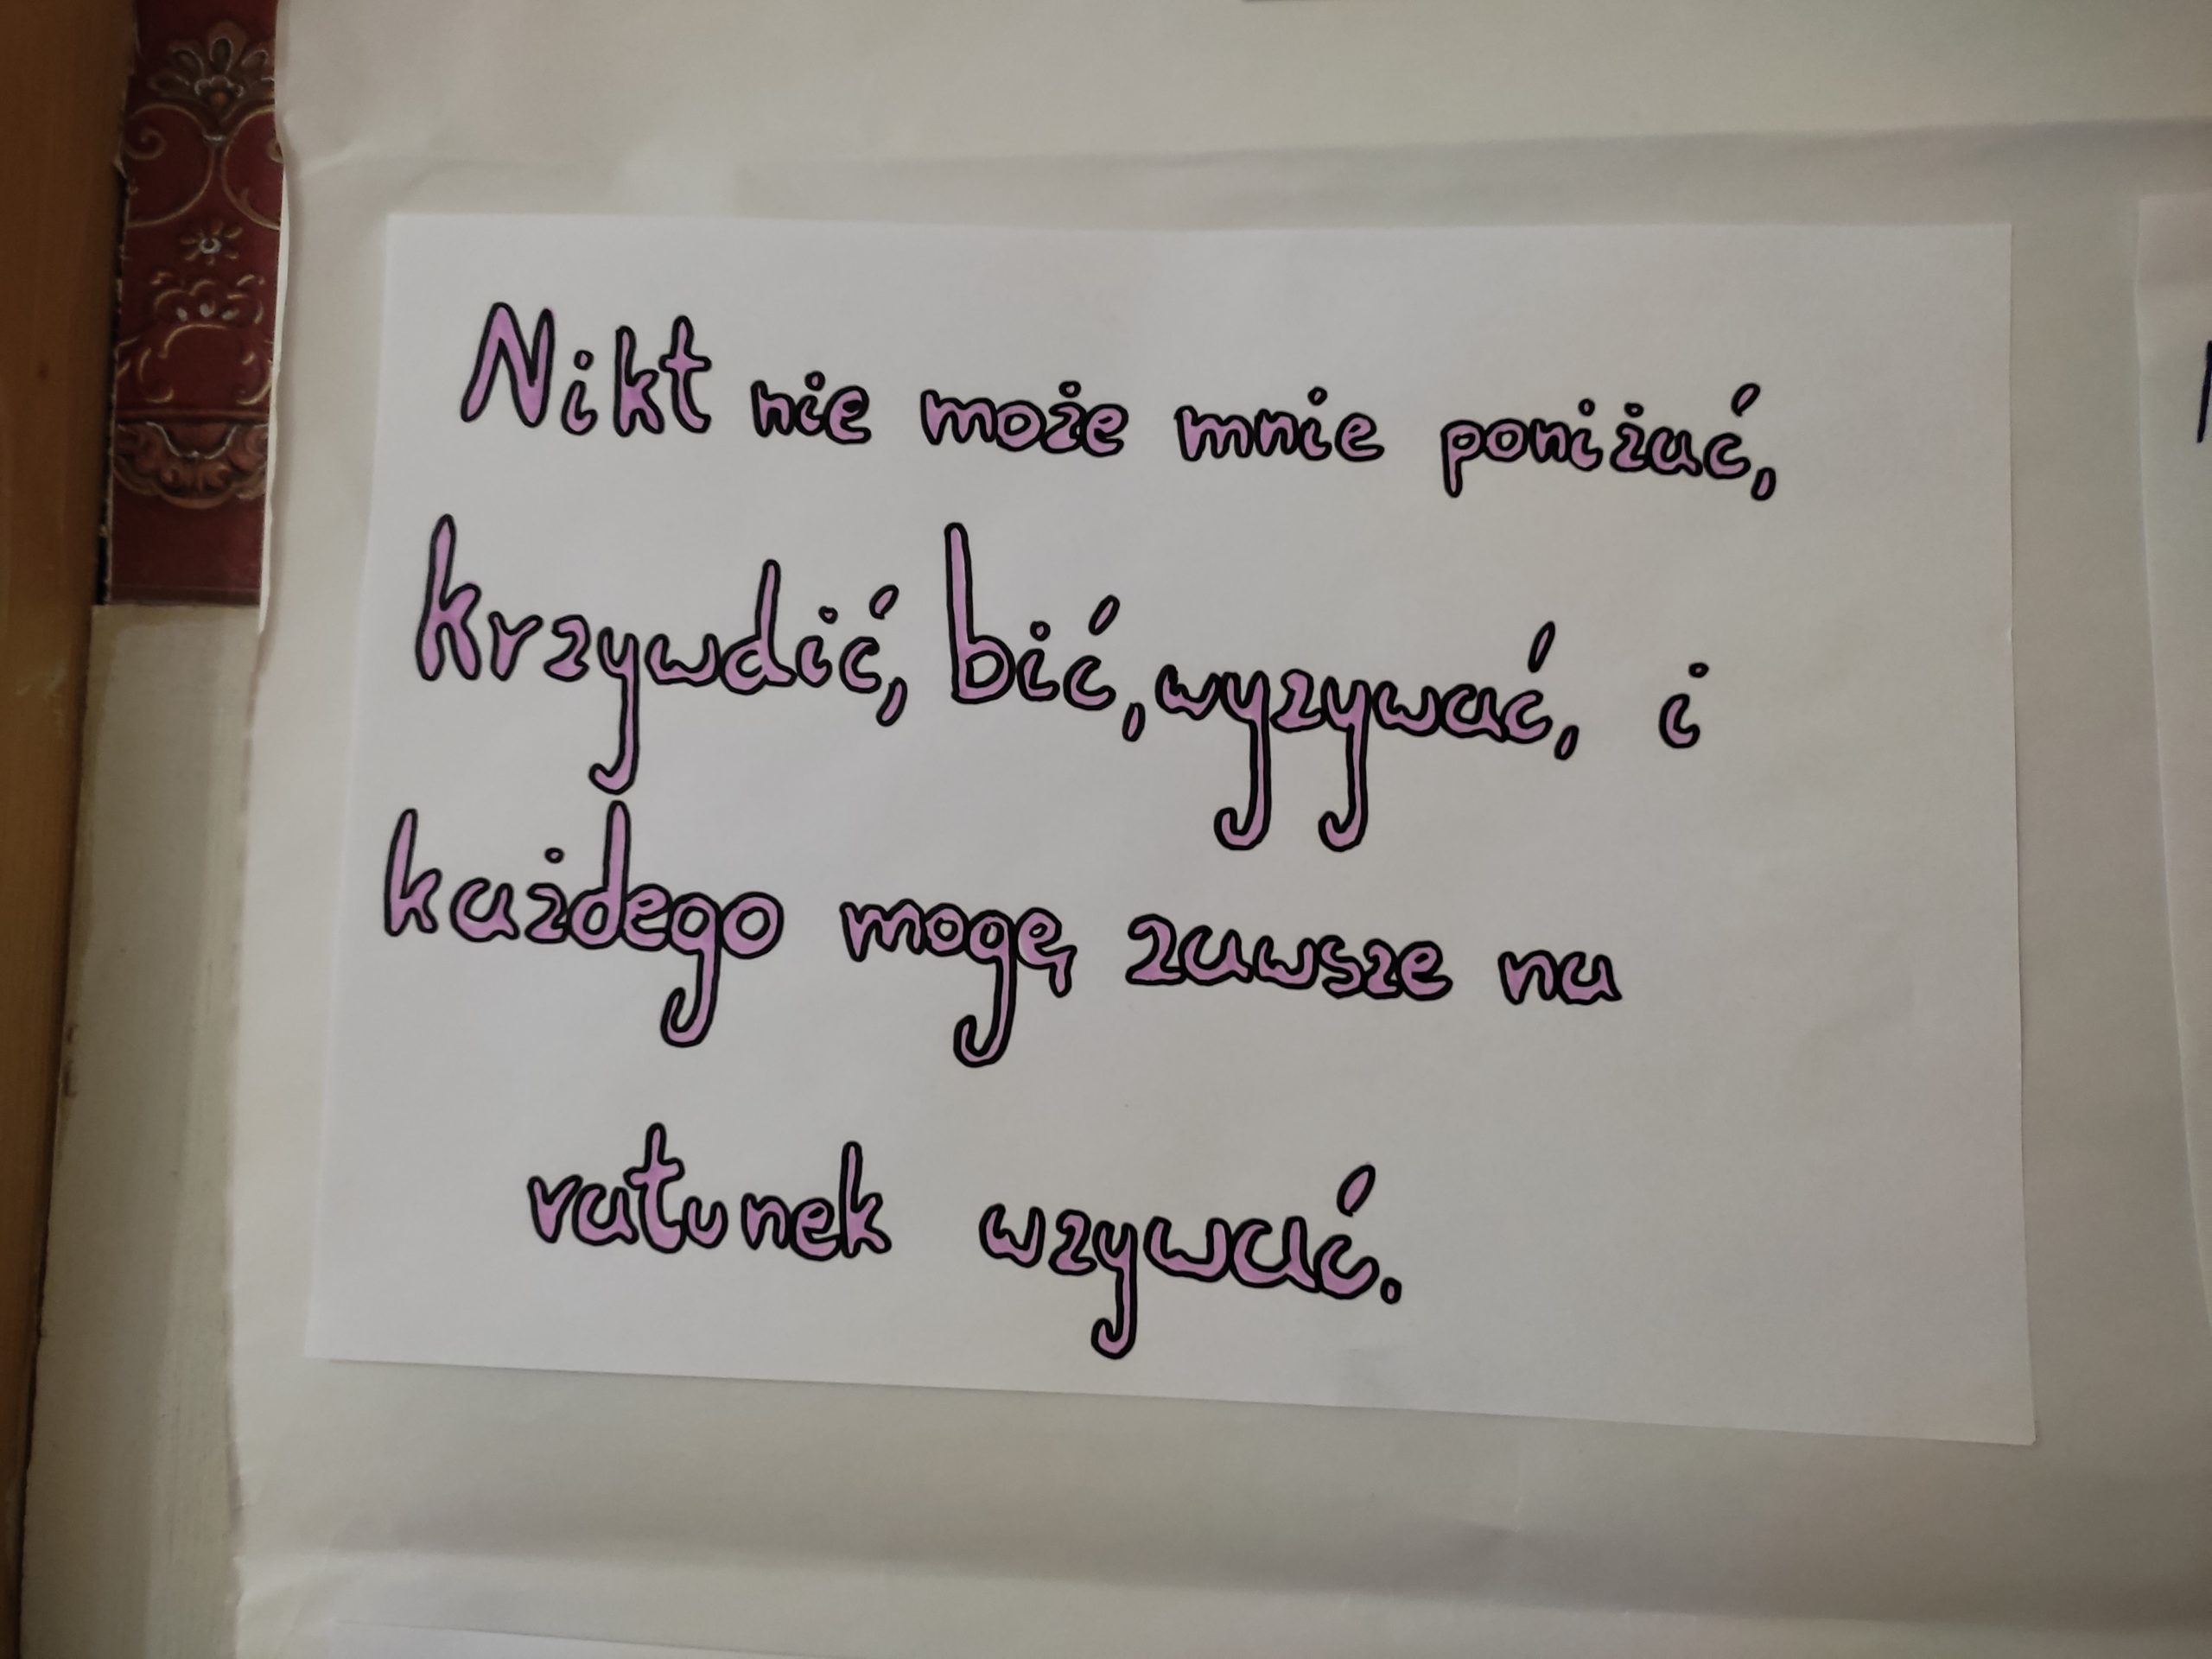 Nikt nie może mnie poniżać,
krzywdić, bić, wyzywać, i
każdego mogę zawsze na
ratunek wzywać.